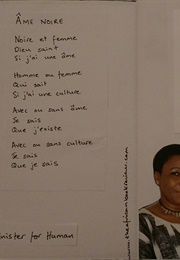 ÂME NOIRE
Noire et femme
Dieu saint
Si j'ai une âme
Homme ou femme
Qui sait
Si j'ai une culture
Avec ou sans âme
Je sais
Que j'existe
Avec ou sans culture
Je sais
Que je sais
inister for Human